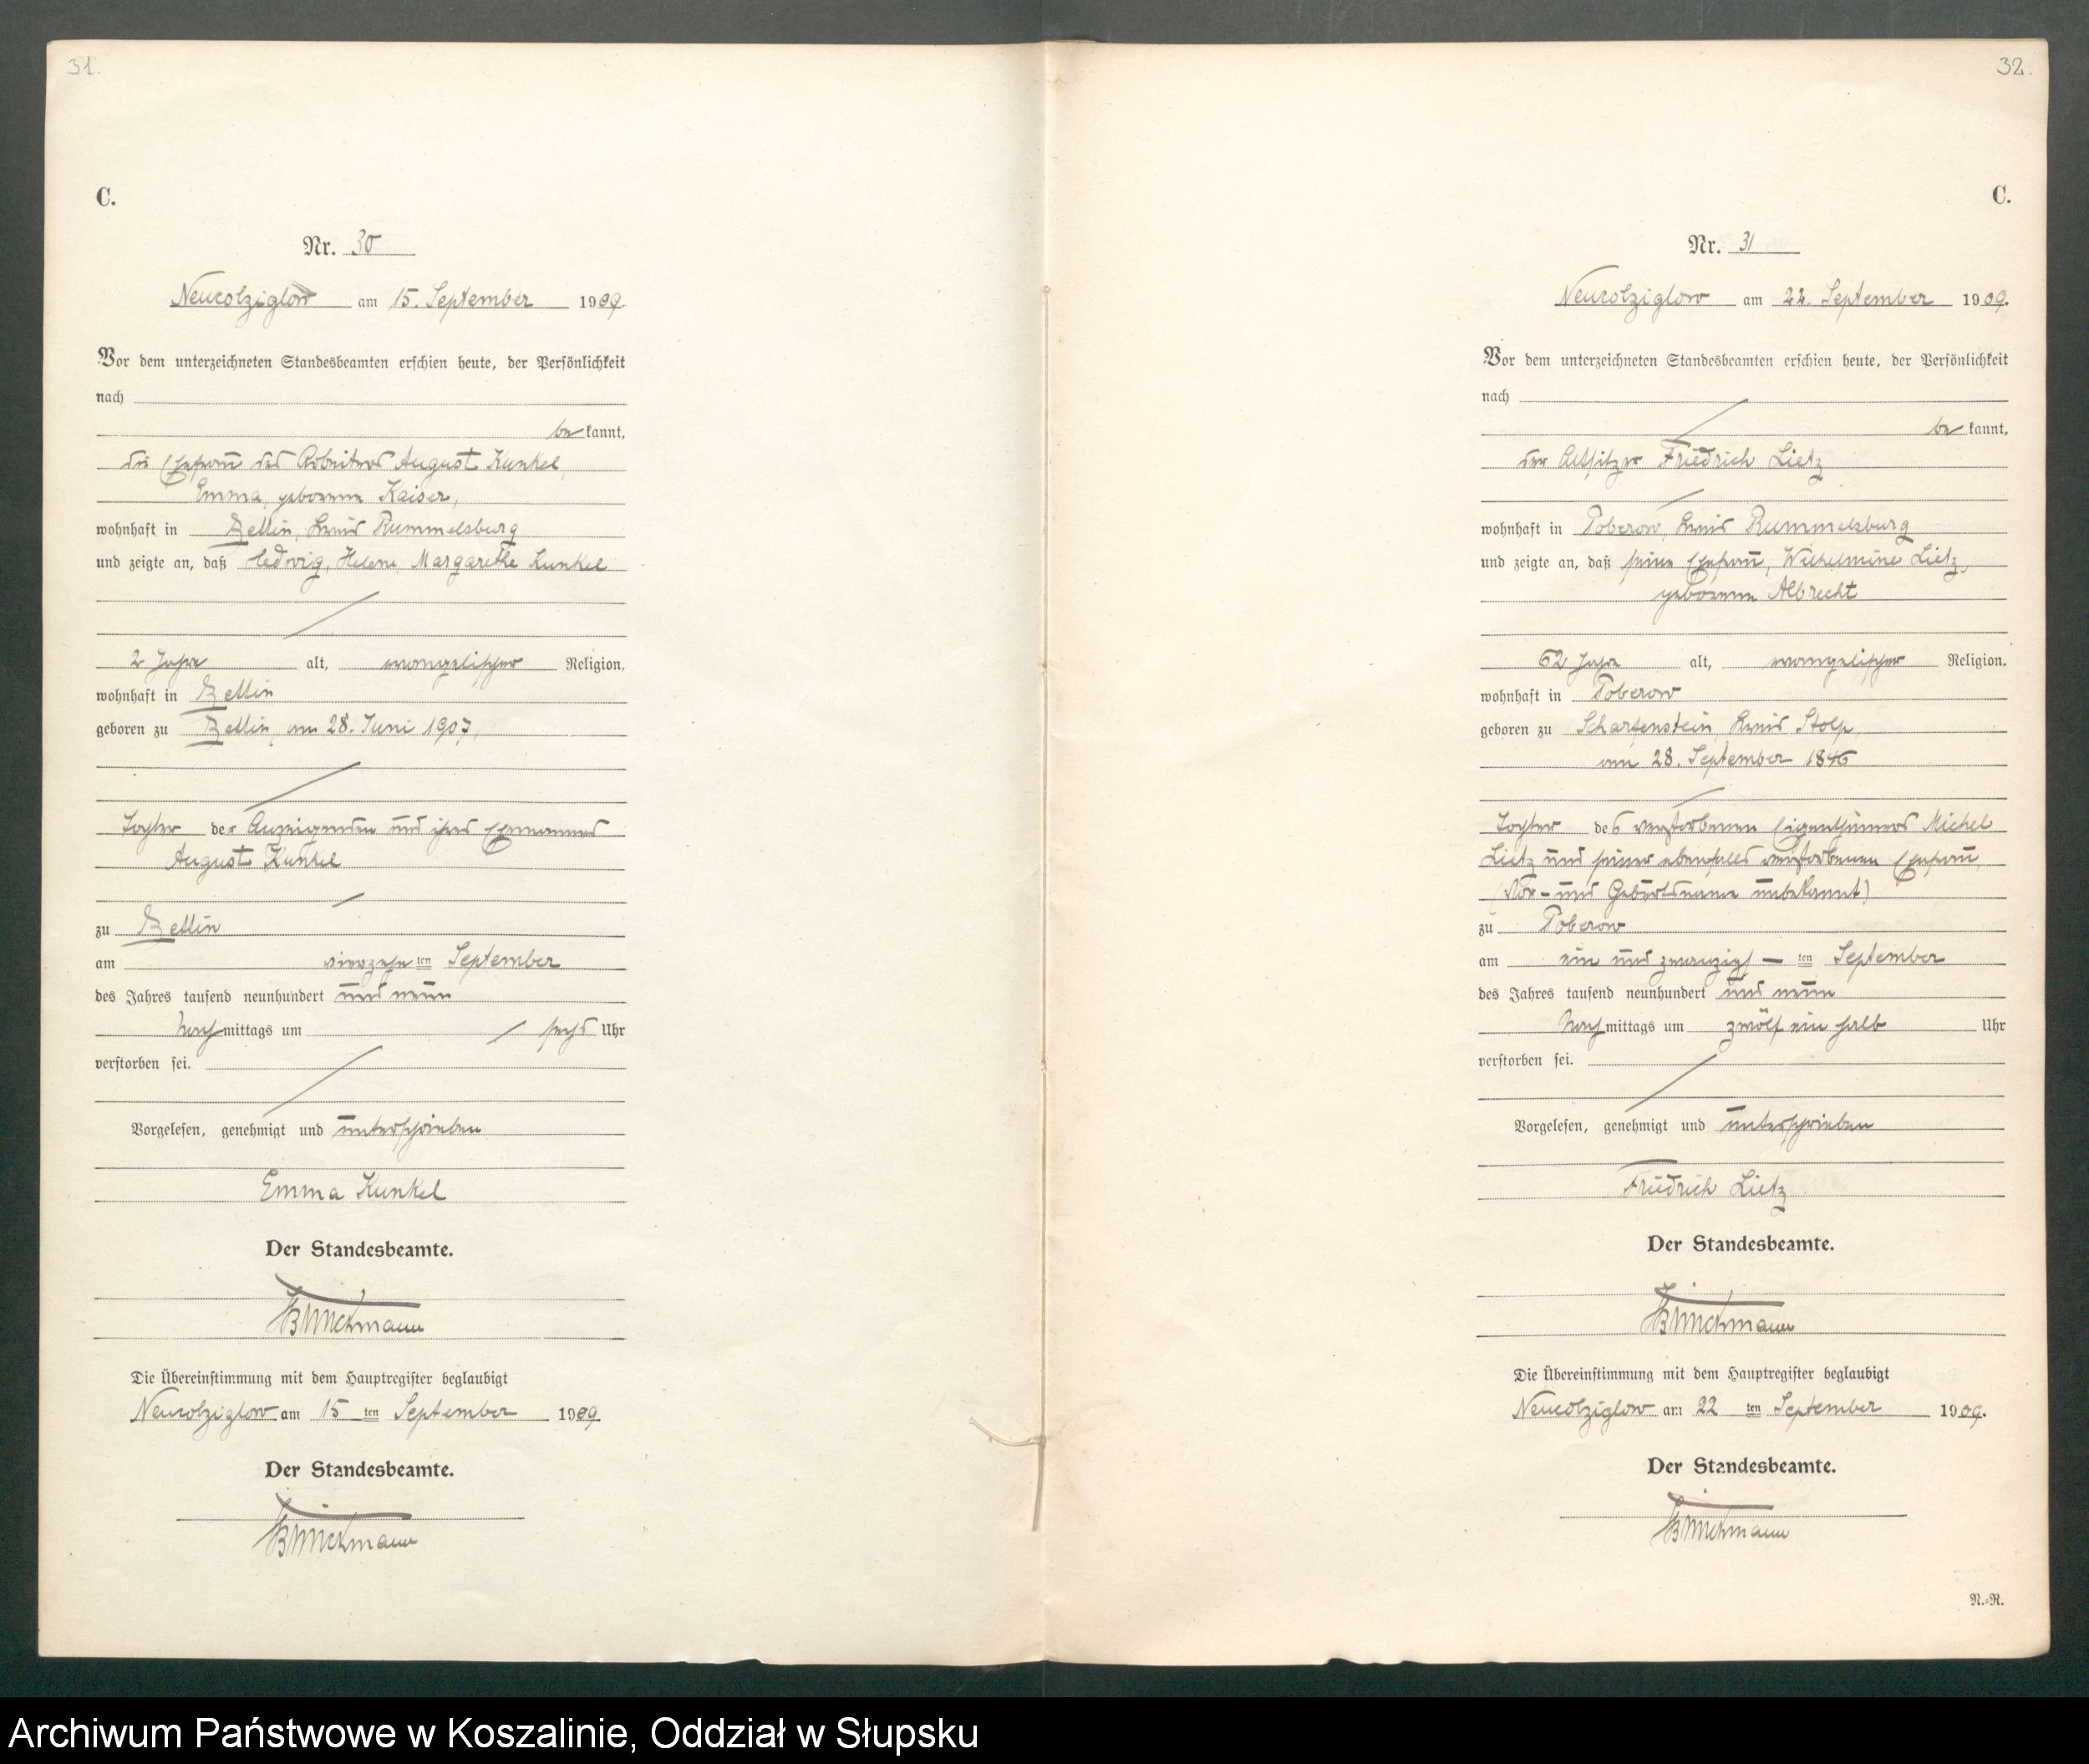 31.
C.
Nr. 30
Neucolziglow am 15. September 1909.
Vor dem unterzeichneten Standesbeamten erschien heute, der Persönlichkeit
nach
be kannt,
die Ehefrau des Arbeiters August Kunkel,
Emma, geborene Kaiser,
wohnhaft in Zettin, Kreis Rummelsburg
und zeigte an, daß Hedwig, Helene, Margarethe Kunkel
2 Jahre alt, evangelischer Religion,
wohnhaft in Zettin
geboren zu Zettin, am 28. Juni 1907,
Tochter der Anzeigenden und ihres Ehemannes
August Kunkel
zu Zettin
am vierzehn ten September
des Jahres tausend neunhundert und neun
Nach mittags um sechs Uhr
verstorben sei.
Vorgelesen, genehmigt und unterschrieben
Emma Kunkel
Der Standesbeamte.
Die Übereinstimmung mit dem Hauptregister beglaubigt
Neucolziglow am 15 ten September 1909
Der Standesbeamte.
32.
C.
Nr. 31
Neucolziglow am 22. September 1909.
Vor dem unterzeichneten Standesbeamten erschien heute, der Persönlichkeit
nach
be kannt,
der Altsitzer Friedrich Lietz
wohnhaft in Poberow, Kreis Rummelsburg
und zeigte an, daß seine Ehefrau, Wilhelmine Lietz,
geborene Albrecht
62 Jahre alt, evangelischer Religion,
wohnhaft in Poberow
geboren zu Scharfenstein, Kreis Stolp,
am 28. September 1846
Tochter des verstorbenen Eigenthümers Michel
Lietz und seiner ebenfalls verstorbenen Ehefrau,
(Vor- und Geburtsname unbekannt)
zu Poberow
am ein und zwanzigs — ten September
des Jahres tausend neunhundert und neun
Nach mittags um zwölf ein halb Uhr
verstorben sei.
Vorgelesen, genehmigt und unterschrieben
Friedrich Lietz
Der Standesbeamte.
Die Übereinstimmung mit dem Hauptregister beglaubigt
Neucolziglow am 22 ten September 1909.
Der Standesbeamte.
N.-R.
Archiwum Państwowe w Koszalinie, Oddział w Słupsku